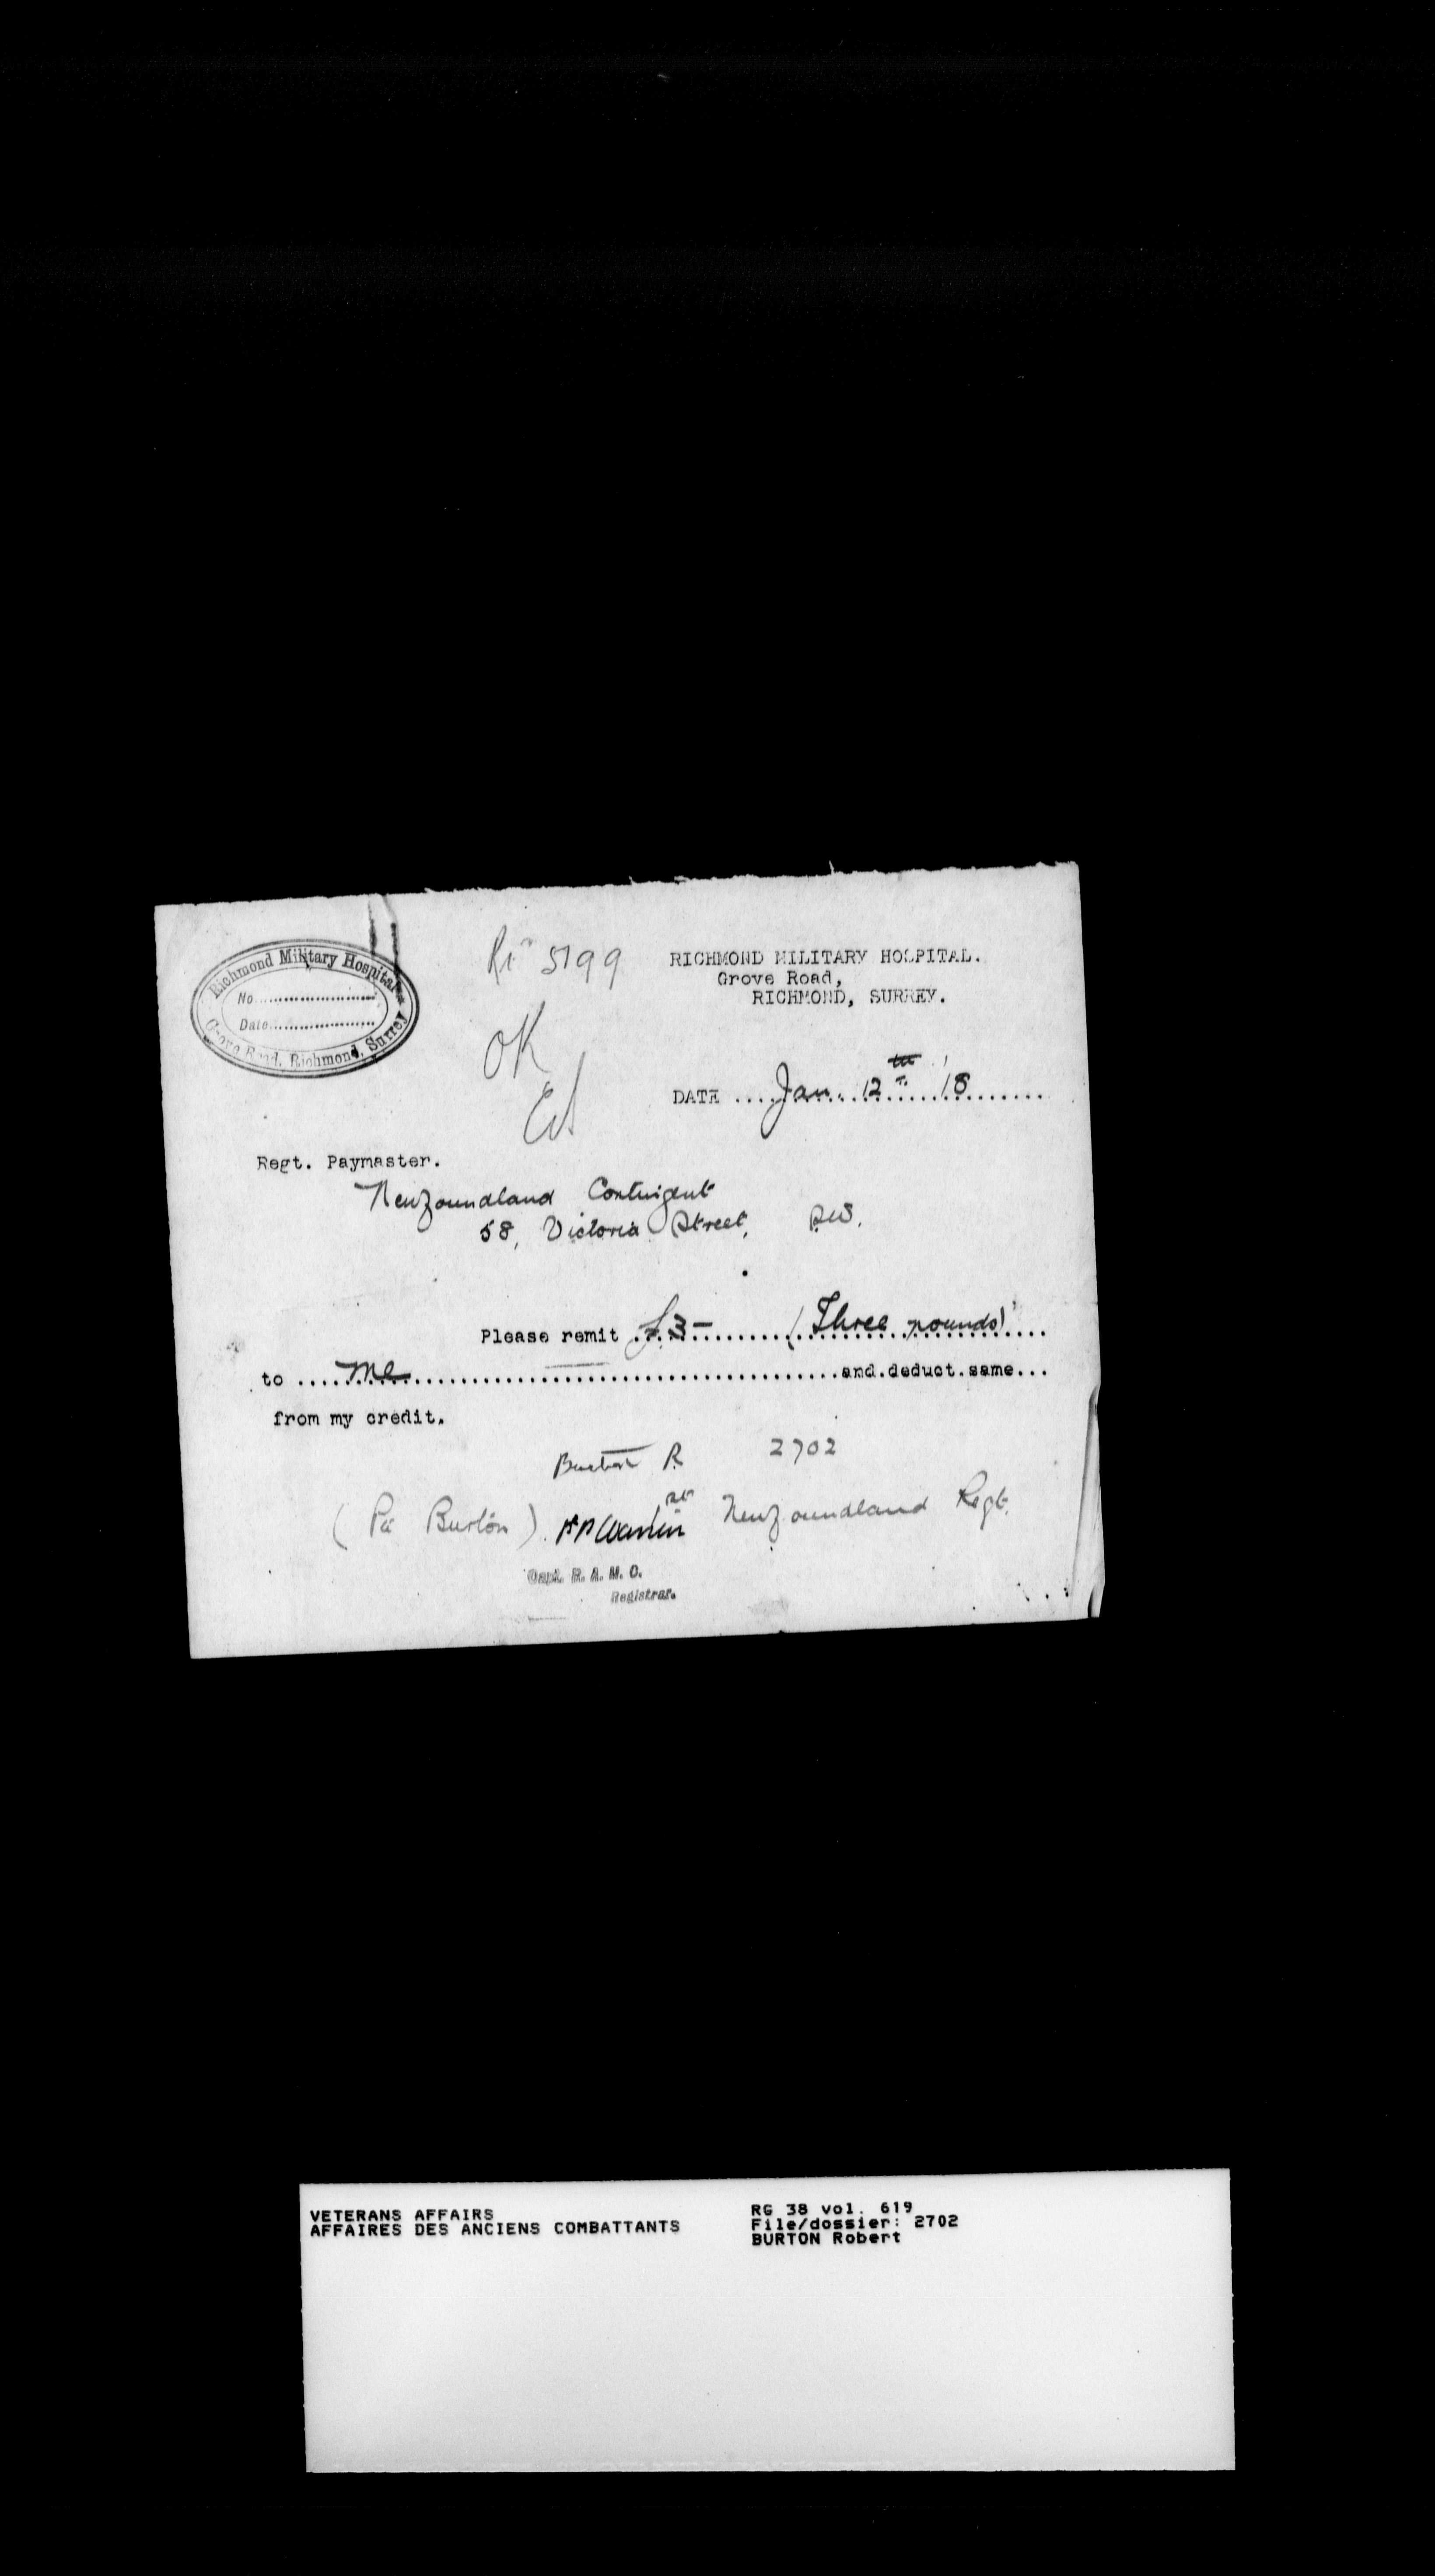 Richmond Military Hospital
No.......................
Date.....................
Grove Road, Richmond, Surrey
5199
RICHMOND MILITARY HOSPITAL.
Grove Road,
RICHMOND, SURREY.
OK
DATE ....Jan. 12th '18........
Regt. Paymaster.
Newfoundland Contingent
58, Victoria Street, S.W.
Please remit £3- (Three pounds)
to ....me....and.deduct.same...
from my credit.
Burton R. 2702
(Pte Burton) Newfoundland Regt.
Capt. R. A. M. C.
Registrar.
VETERANS AFFAIRS
AFFAIRES DES ANCIENS COMBATTANTS
RG 38 vol. 619
File/dossier: 2702
BURTON Robert